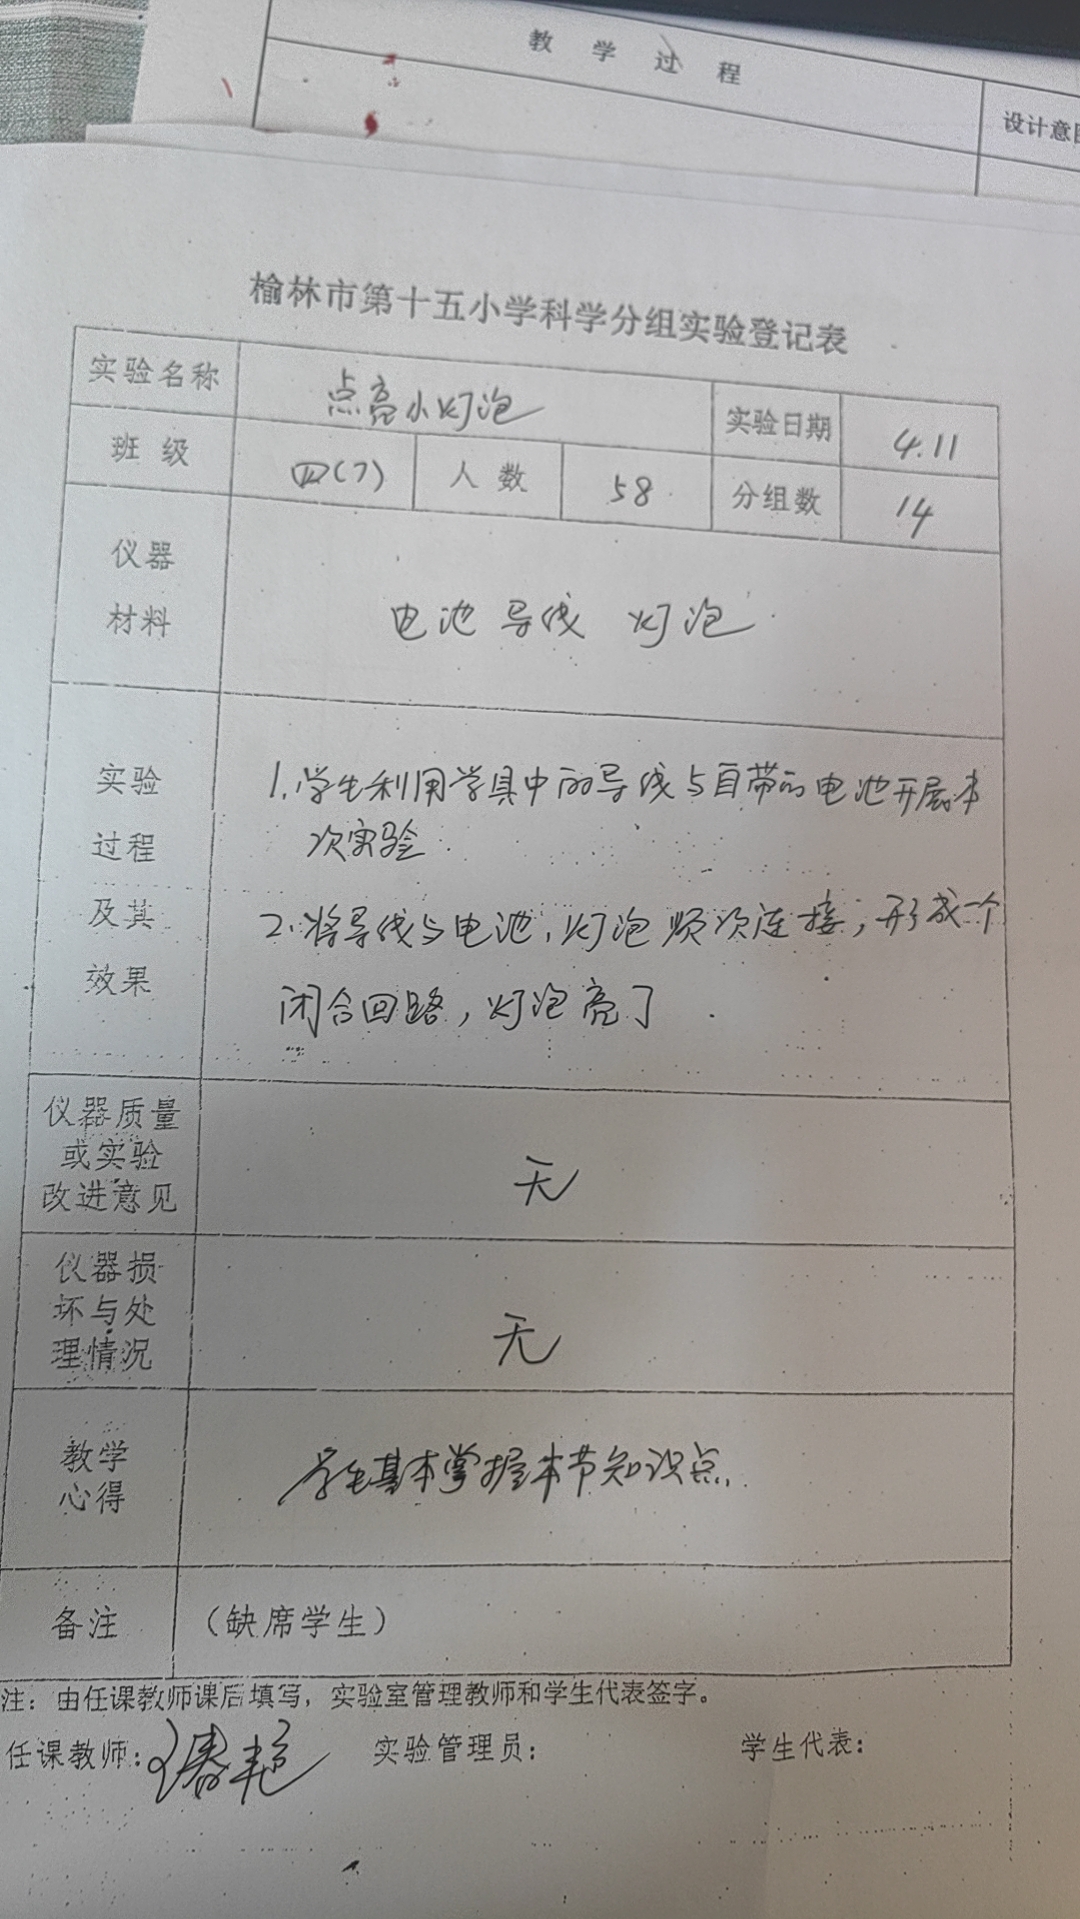 教 学 过 程
设计意
榆林市第十五小学科学分组实验登记表
实验名称 点亮小灯泡 实验日期 4.11
班 级 四(7) 人 数 58 分组数 14
仪器
材料
电池 导线 灯泡
实验
过程
及其
效果
1.学生利用学具中的导线与自带的电池开展本
次实验
2.将导线与电池、灯泡顺次连接，形成一个
闭合回路，灯泡亮了
仪器质量
或实验
改进意见
无
仪器损
坏与处
理情况
无
教学
心得
学生基本掌握本节知识点.
备注 （缺席学生）
注：由任课教师课后填写，实验室管理教师和学生代表签字。
任课教师： 实验管理员： 学生代表：